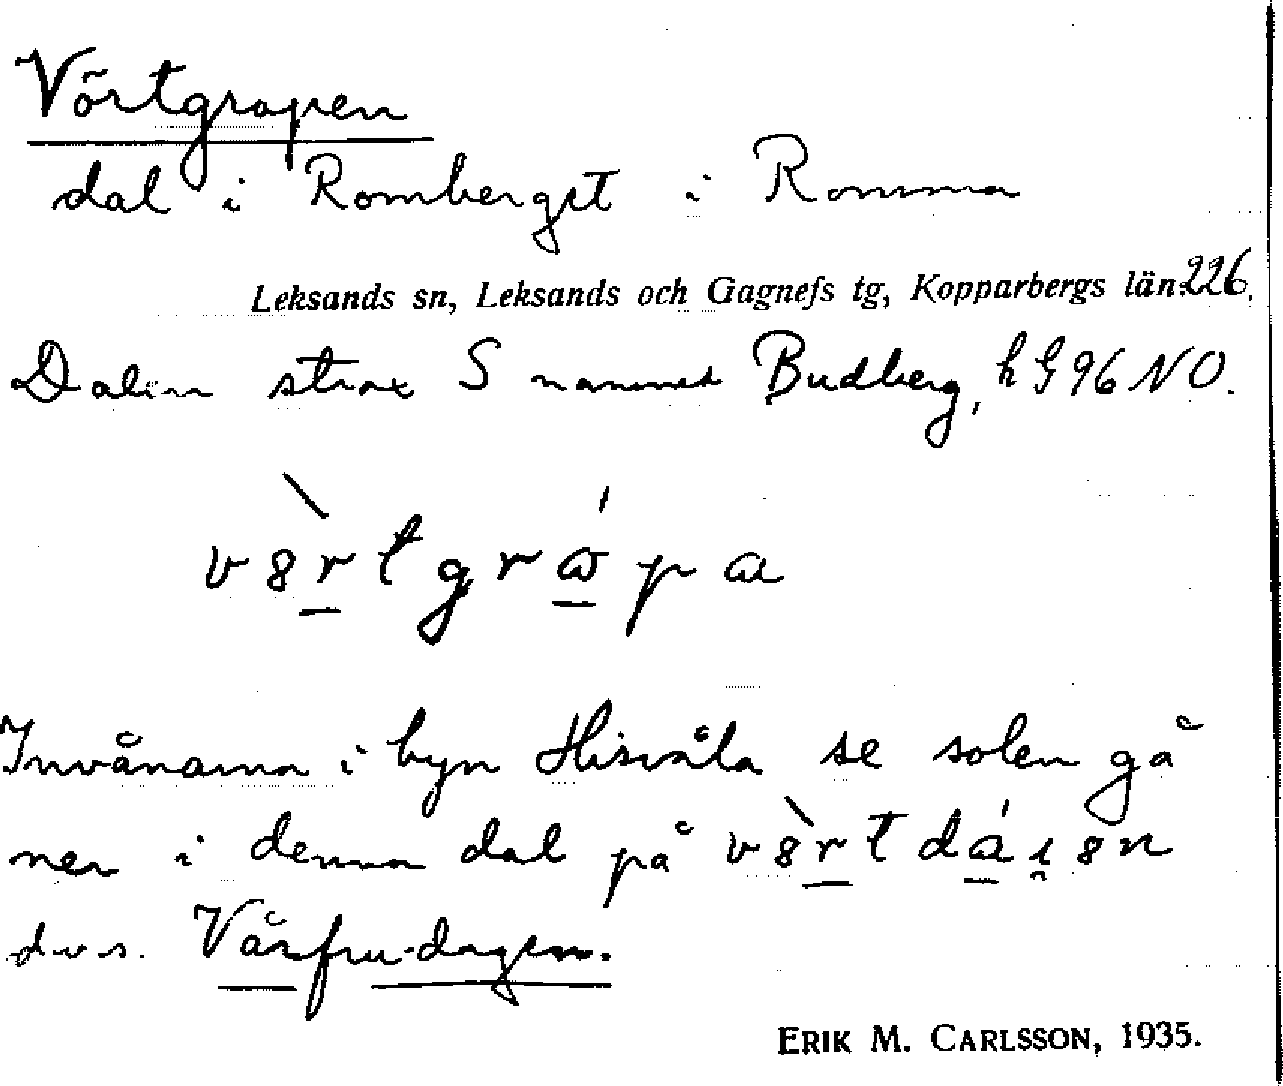 Vörtgropen
dal i Romberget i Romma
Leksands sn, Leksands och Gagnefs tg, Kopparbergs län. 226.
Dalen strax S namnet Budberg, h G 96 NO.
v8̀rtgrα̍pa
Invånarna i byn Hisvåla se solen gå
ner i denna dal på v8̀rtdάı̯8n
dvs. Vårfru-dagen.
ERIK M. CARLSSON, 1935.